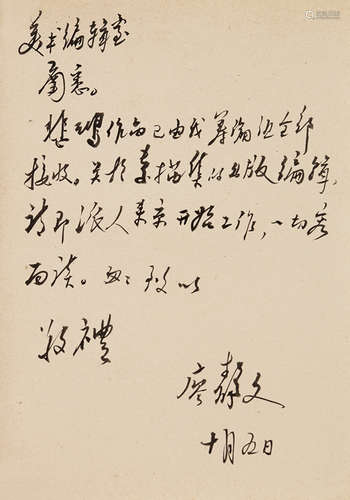 美术编辑室
函悉。
悲鸿作品已由我筹备处全部
接收。关于素描集的出版编辑,
请即派人来京开始工作,一切容
面谈。匆匆 致以
敬禮
廖静文
十月五日